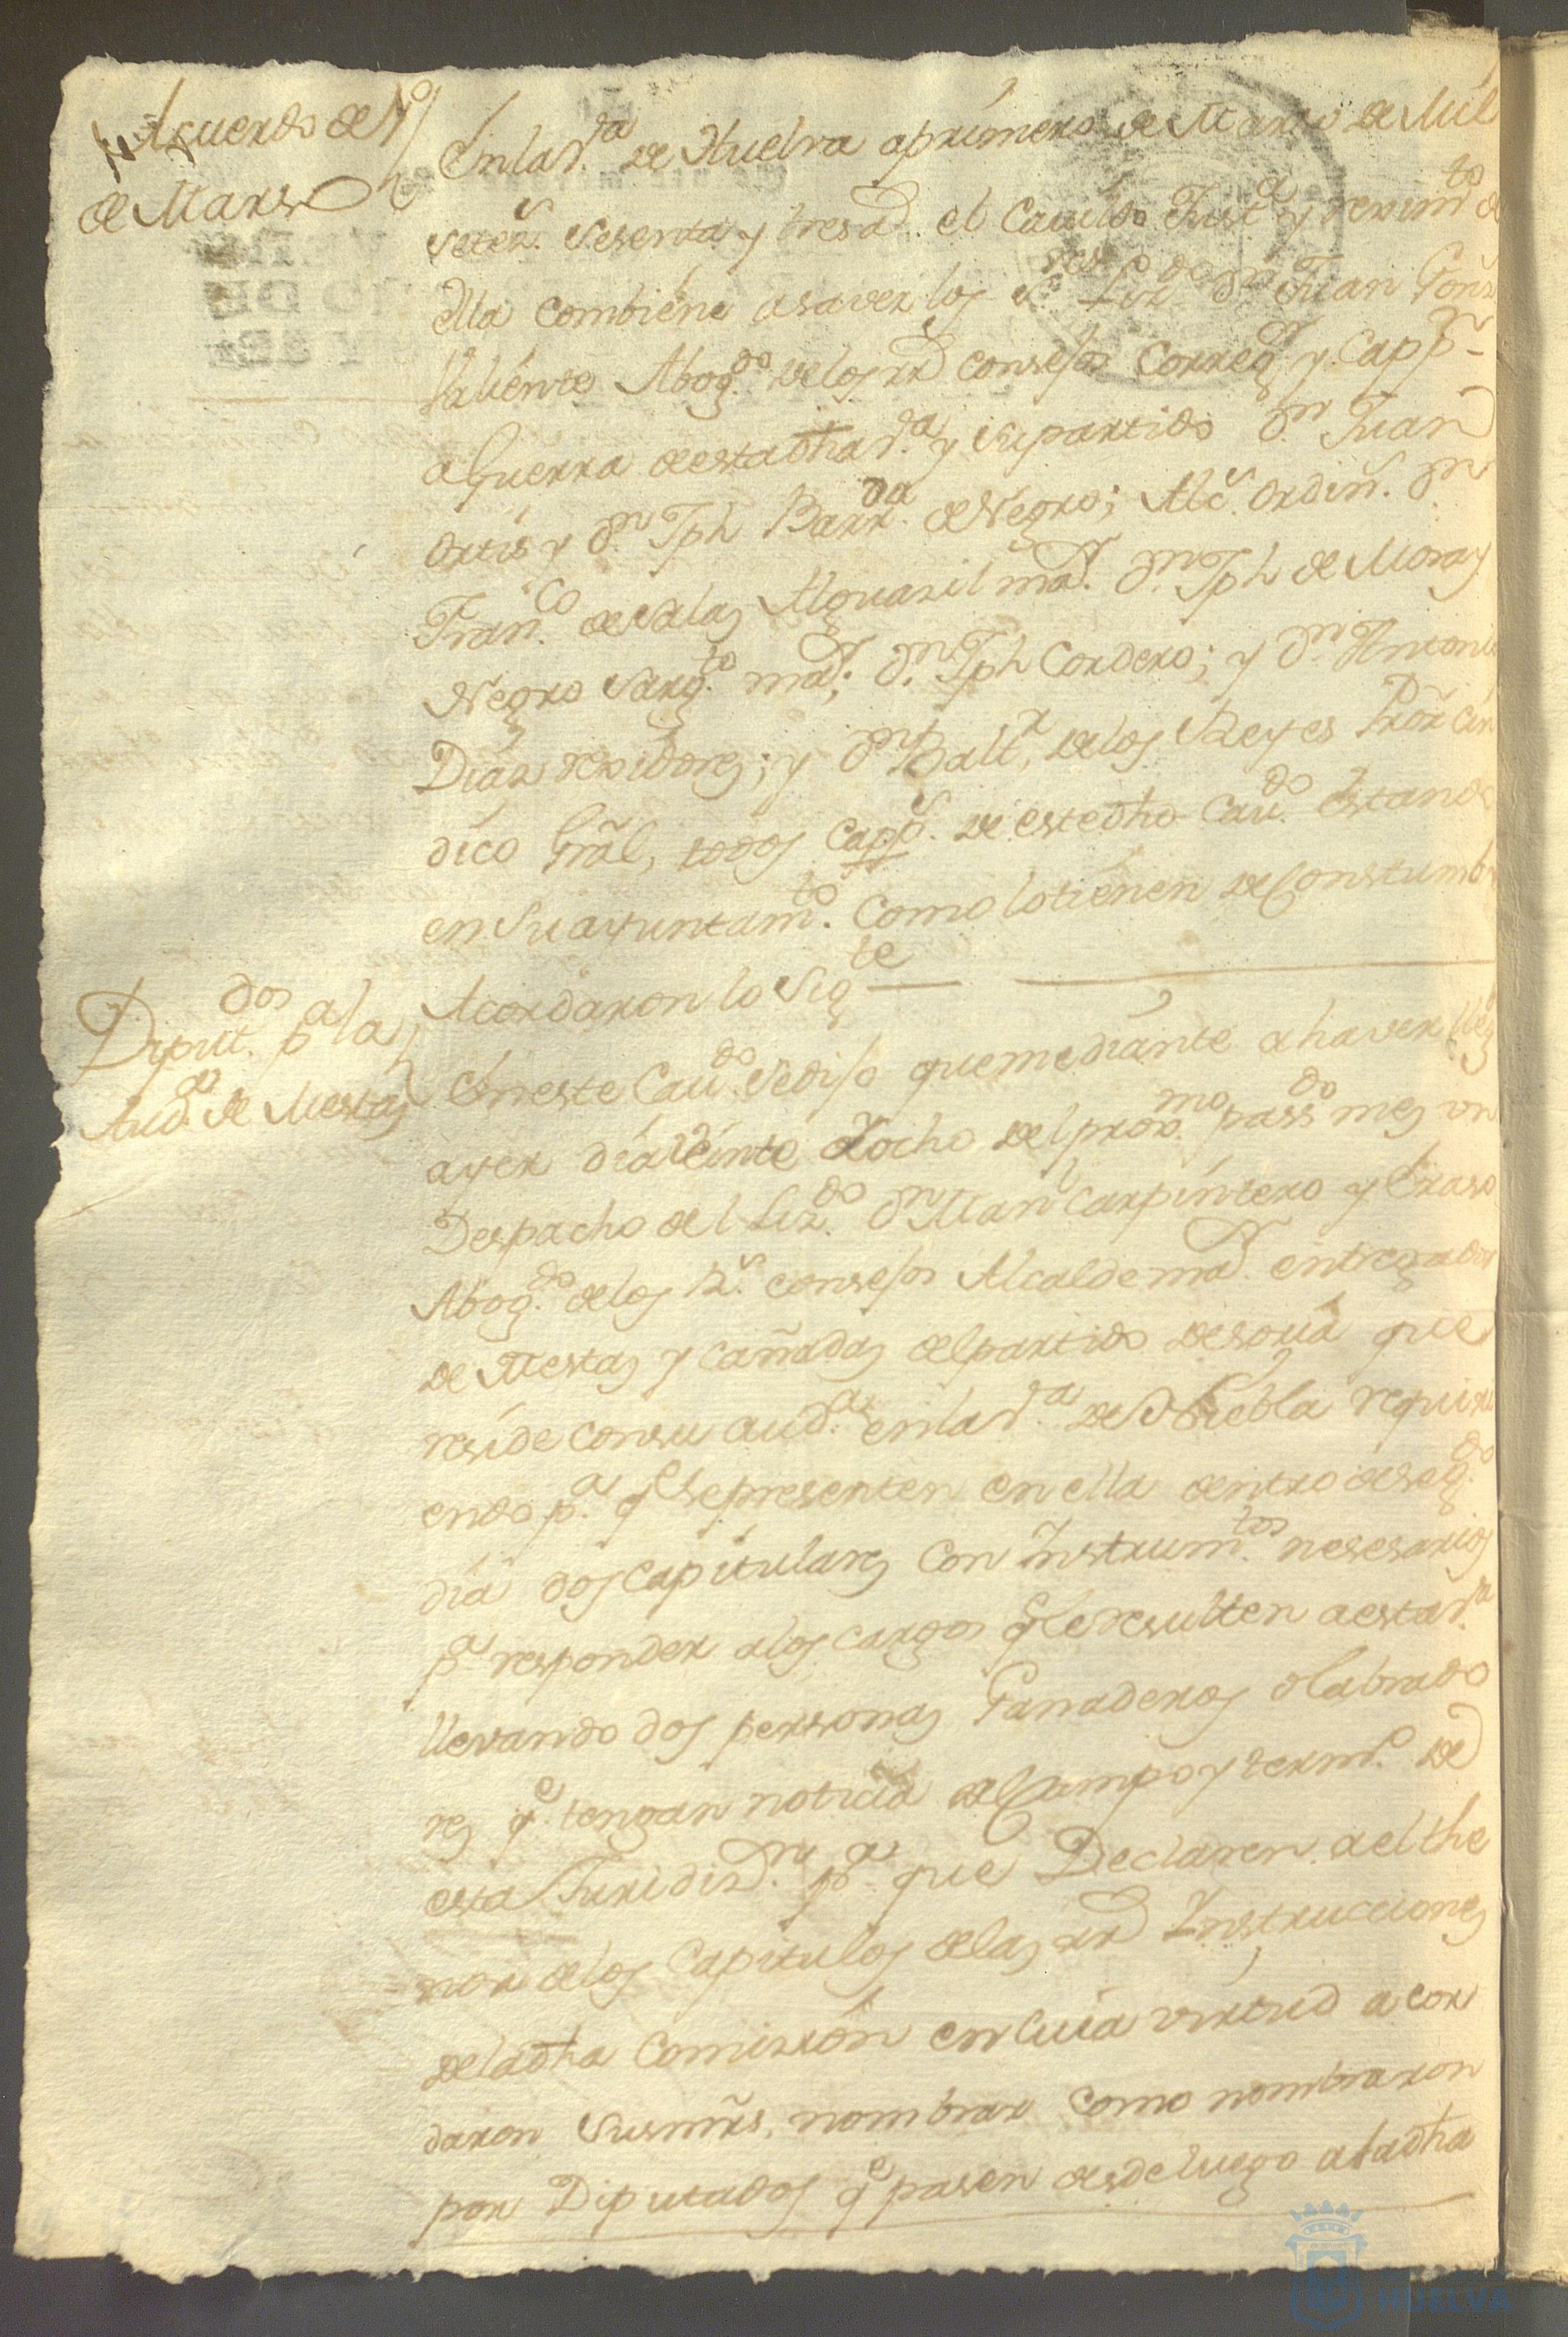 Acuerdo de 1º
de Marso
En la Vª de Huelva a primero de Marso de Mil
setezs. sesenta y tres ad. el Cavildo Justª y reximto de
ella combiene a saver los Sres Lizdo Dn Juan Gonz
Valiente Abogdo de los rs consejos Corregr y Cappn
a Guerra de esta dha Vª y su partido Dn Juan
Ortis y Dn Jph Barrda de Negro; Alcs. ordins. Dn
Franco de Salas Alguazil mar. Dn Jph de Mora y
Negro Sargto mar; Dn Jph Cordero; y Dn Antonio
Dias rexidores; y Dn Baltr, de los Reyes Pror Cin
dico Gral, todos Capps. de este dho Cavdo estando
en su ayuntamto. Como lo tienen de Constumbre
Acordaron lo sigte
Diputdos pª las
Audas de Mestas
En este Cavdo se dijo que mediante a haver lleg
ayer dia veinte y ocho del proxmo passdo mes un
Despacho del Lizdo Dn Manl Carpintero y Eraso
Abogdo de los Rs consejos Alcalde mar entregador
de Mestas y cañadas del partido de soria que
reside con su audª en la Vª de Niebla requiri
endo pª qe se presenten en ella dentro de segdo
dia dos Capitulares con Instrumtos nesesarios
pª responder a los cargos qe le resulten a esta Vª
llevando dos personas Ganaderos o labrado
res qe tengan noticia del Campo y termº de
esta Juridizn pª que Declaren a el the
nor de los Capitulos de las rs Instrucciones
de la dha Comision en cuia virtud acor
daron sus mrs. nombrar como nombraron
por Diputados qe pasen desde luego a la dha
HUELVA